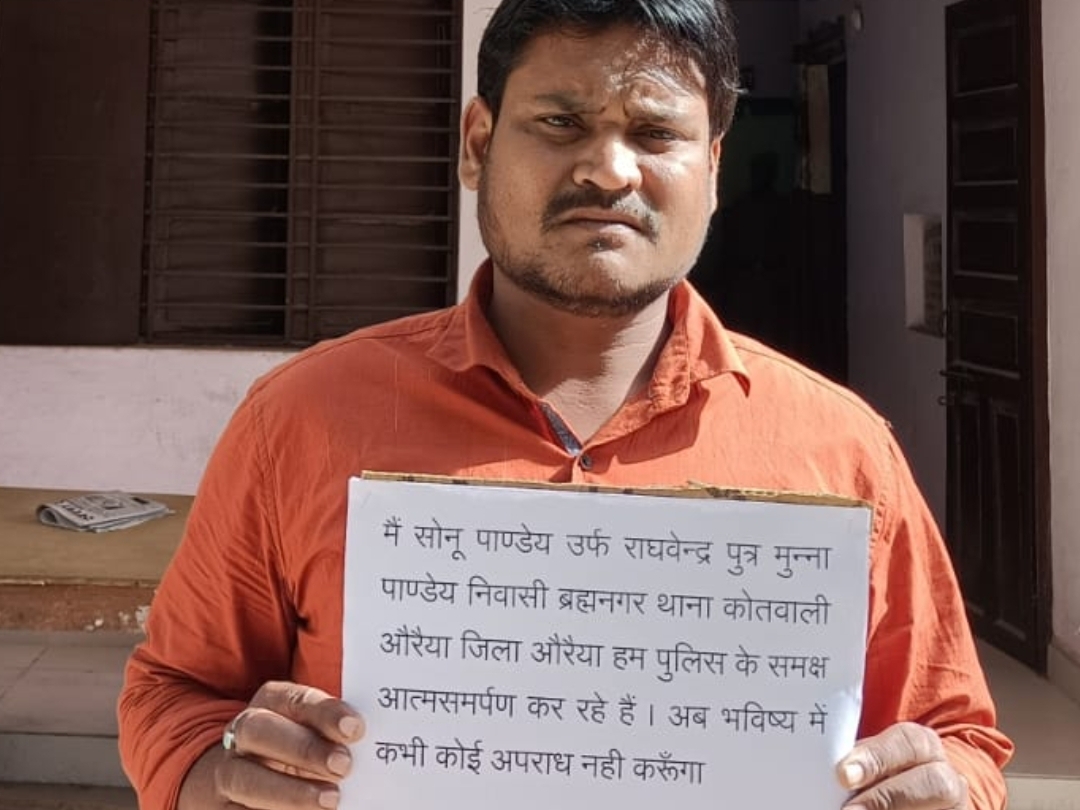 मैं सोनू पाण्डेय उर्फ राघवेन्द्र पुत्र मुन्ना
पाण्डेय निवासी ब्रह्मनगर थाना कोतवाली
औरैया जिला औरैया हम पुलिस के समक्ष
आत्मसमर्पण कर रहे हैं । अब भविष्य में
कभी कोई अपराध नही करूँगा